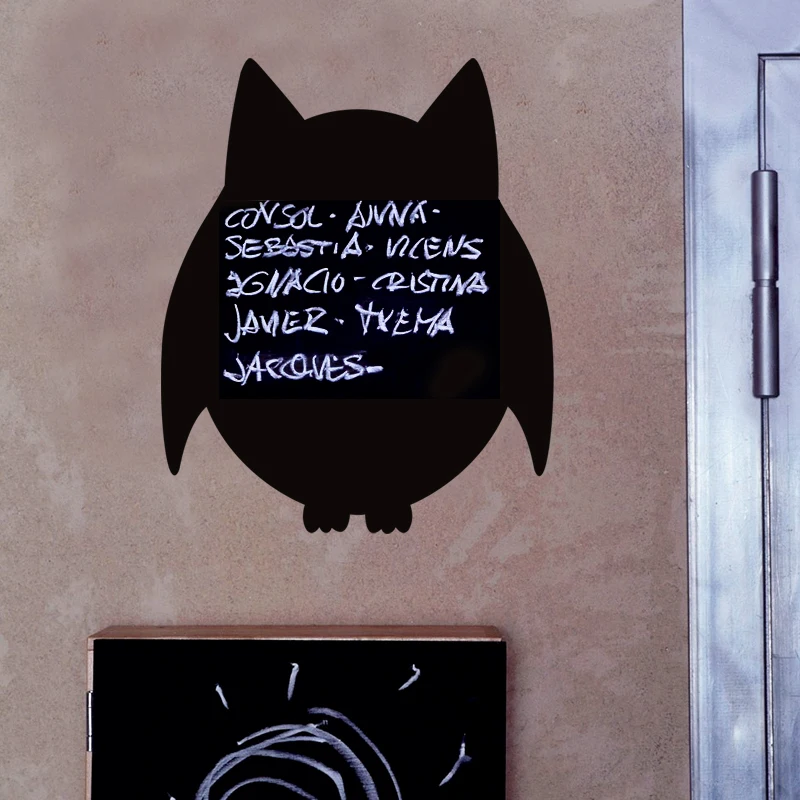 CONSOL · ANNA ·
SEBASTIÀ · VICENS
IGNACIO - CRISTINA
JAVIER · TXEMA
JACQUES -